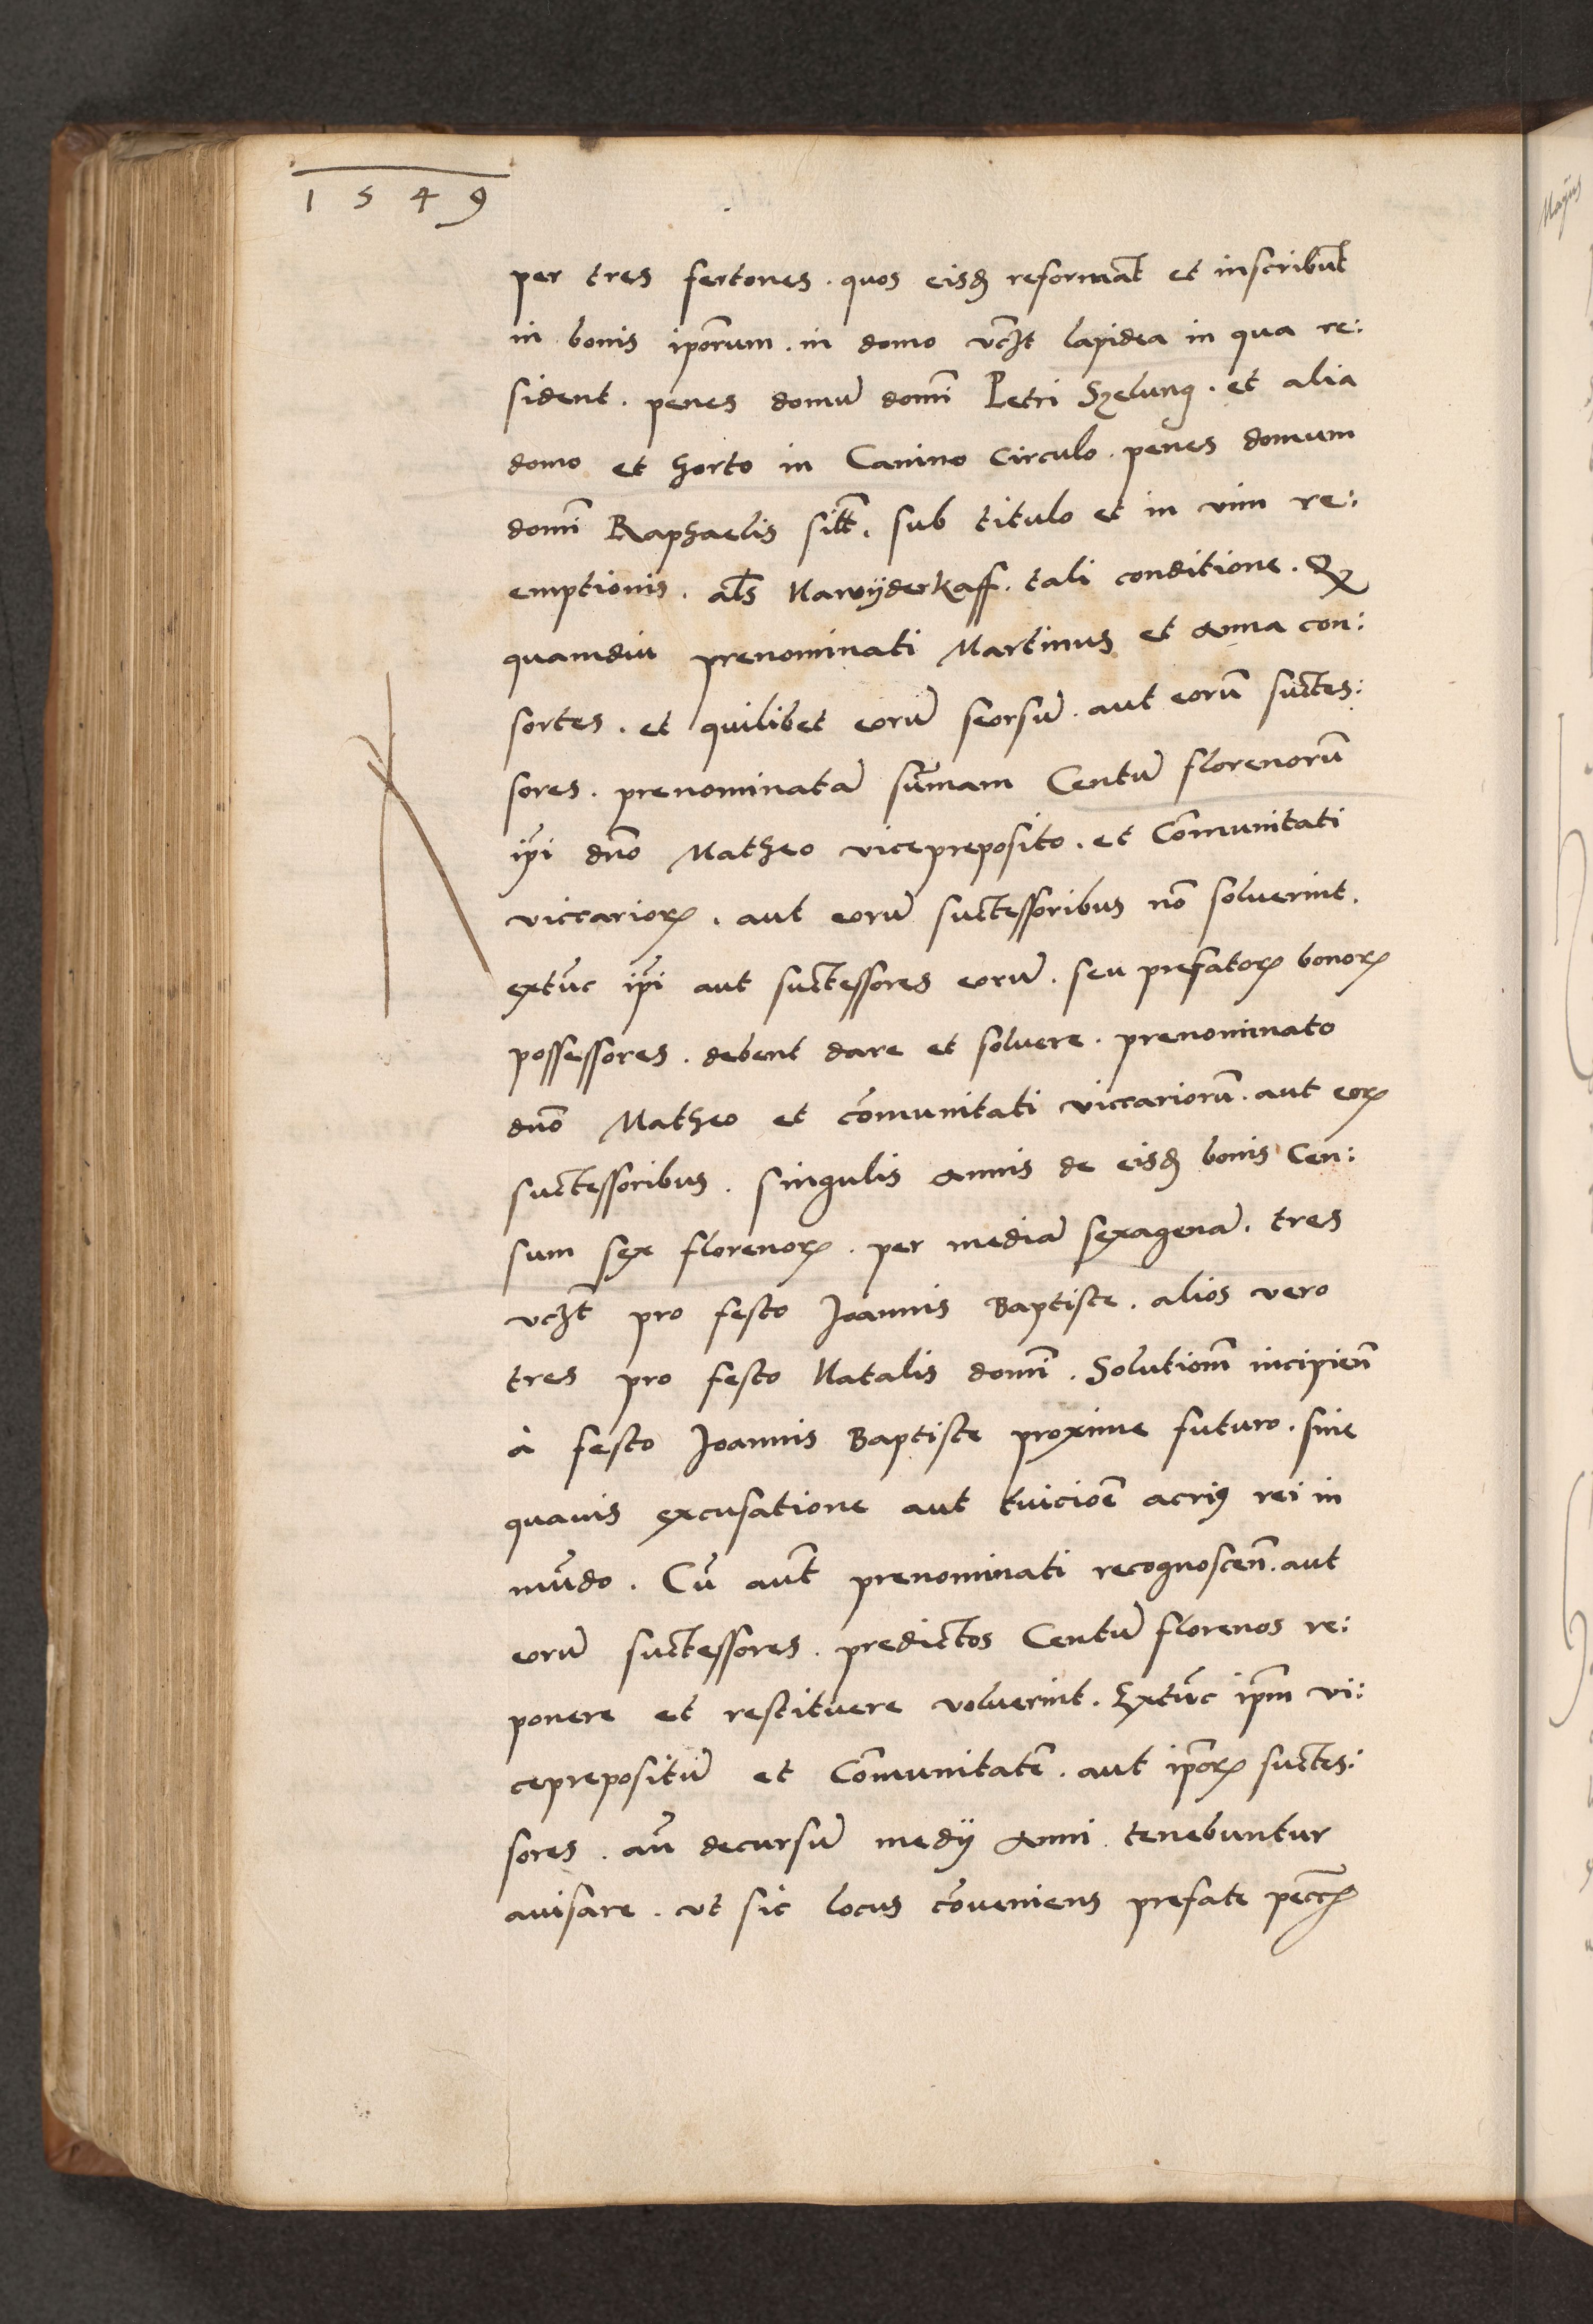 1549
per tres fertones . quos eisd reformāt et inscribūt
in bonis ip̄orum . in domo vcȝt lapidea in qua re:
sident . penes domū domī Petri Szelung . et alia
domo et horto in Canino Circulo . penes domum
domī Raphaelis silt̄ . sub titulo et in vim re:
emptionis . al̄s Nawÿderkaff . tali conditione . Qꝫ
quamdiu prenominati Martinus et Anna con:
sortes . et quilibet eorū seorsū . aut eorū succes:
sores . prenominatā sūmam Centū florenorū
ip̄i dn̄o Matheo vicepreposito . et Cōmunitati
viccarioꝝ . aut eorū successoribus nō soluerint .
extūc ip̄i aut successores eorū . seu prefatoꝝ bonoꝝ
possessores . debent dare et soluere . prenominato
dn̄o Matheo et cōmunitati viccariorū . aut eoꝝ
successoribus . singulis Annis de eisd bonis Cen:
sum sex florenoꝝ . per mediā sexagenā . tres
vcȝt pro festo Joannis Baptiste . alios vero
tres pro festo Natalis domī . Solutionē incipien̄
à festo Joannis Baptiste proxime futuro . sine
quauis excusatione aut tuiciōe acriꝰ rei in
mūdo . Cū aūt prenominati recognoscen̄ . aut
eorū successores . predictos Centū florenos re:
ponere et restituere voluerint . Extūc ip̄m vi:
ceprepositū et Cōmunitatē . aut ip̄oꝝ succes:
sores . an̄ decursū medÿ Anni tenebuntur
auisare . vt sic locus cōueniens prefate